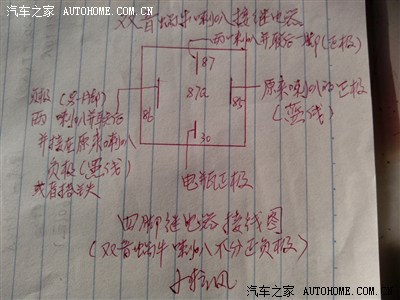 汽车之家 AUTOHOME.COM.CN
汽车之家 AUTOHOME.COM.CN
双音蜗牛喇叭接继电器
两喇叭并联后一脚(正极)
87
87a
86
85
30
负极(另一脚)
两喇叭并联后
并接在原来喇叭
负极(黑线)
或直接搭铁
原来喇叭的正极
(蓝线)
电瓶正极
四脚继电器接线图
(双音蜗牛喇叭不分正负极)
汽车之家 AUTOHOME.COM.CN
汽车之家 AUTOHOME.COM.CN